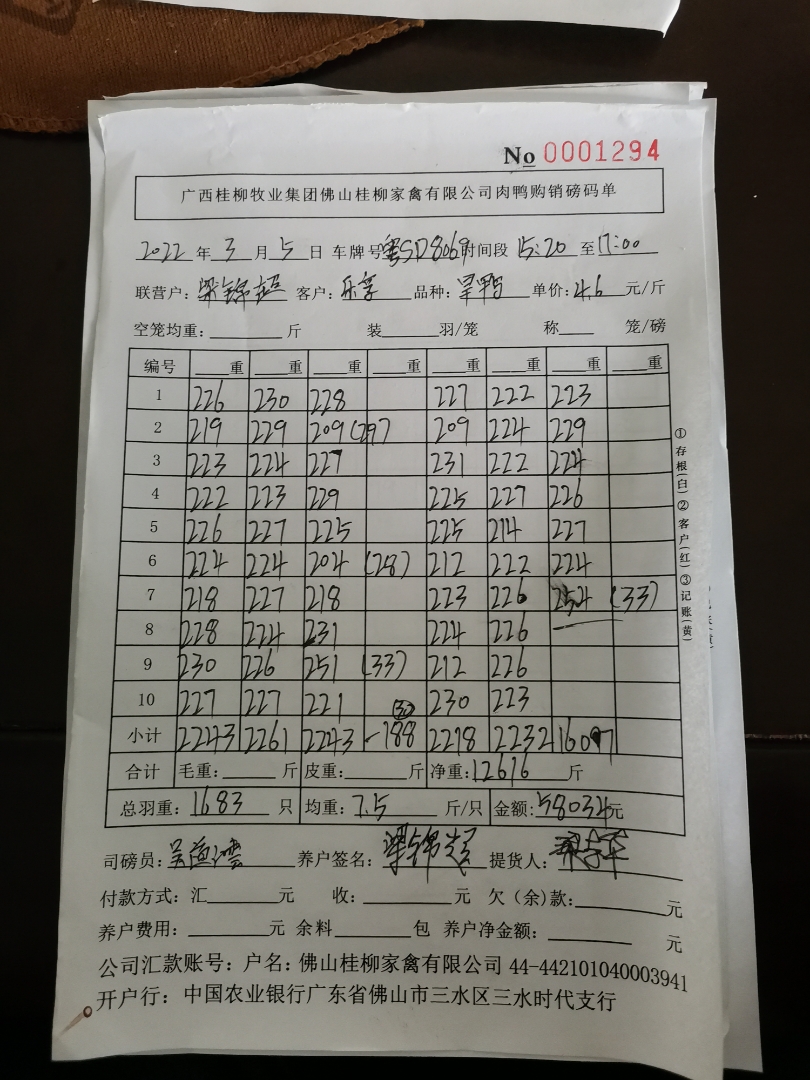 No 0001294
广西桂柳牧业集团佛山桂柳家禽有限公司肉鸭购销磅码单
2022 年 3 月 5 日 车牌号 粤SD8069 时间段 15:20 至 17:00
联营户: 梁锦超 客户: 乐享 品种: 旱鸭 单价: 4.6 元/斤
空笼均重: 斤 装 羽/笼 称 笼/磅
编号 重 重 重 重 重 重 重 重
1 226 230 228 227 222 223
2 219 229 209 (29) 209 224 229
3 223 224 227 231 222 224
4 222 223 229 225 227 226
5 226 227 225 225 214 227
6 224 224 204 (28) 212 222 224
7 218 227 218 223 226 254 (33)
8 228 224 231 224 226
9 230 226 251 (33) 212 226
10 227 227 221 (30) 230 223
小计 2243 2261 2243 -188 2218 2232 1609
合计 毛重: 斤 皮重: 斤 净重: 12616 斤
总羽重: 1683 只 均重: 7.5 斤/只 金额: 58034 元
司磅员: 养户签名: 梁锦超 提货人:
付款方式: 汇 元 收: 元 欠(余)款: 元
养户费用: 元 余料 包 养户净金额: 元
公司汇款账号: 户名: 佛山桂柳家禽有限公司 44-442101040003941
开户行: 中国农业银行广东省佛山市三水区三水时代支行
①存根(白)②客户(红)③记账(黄)